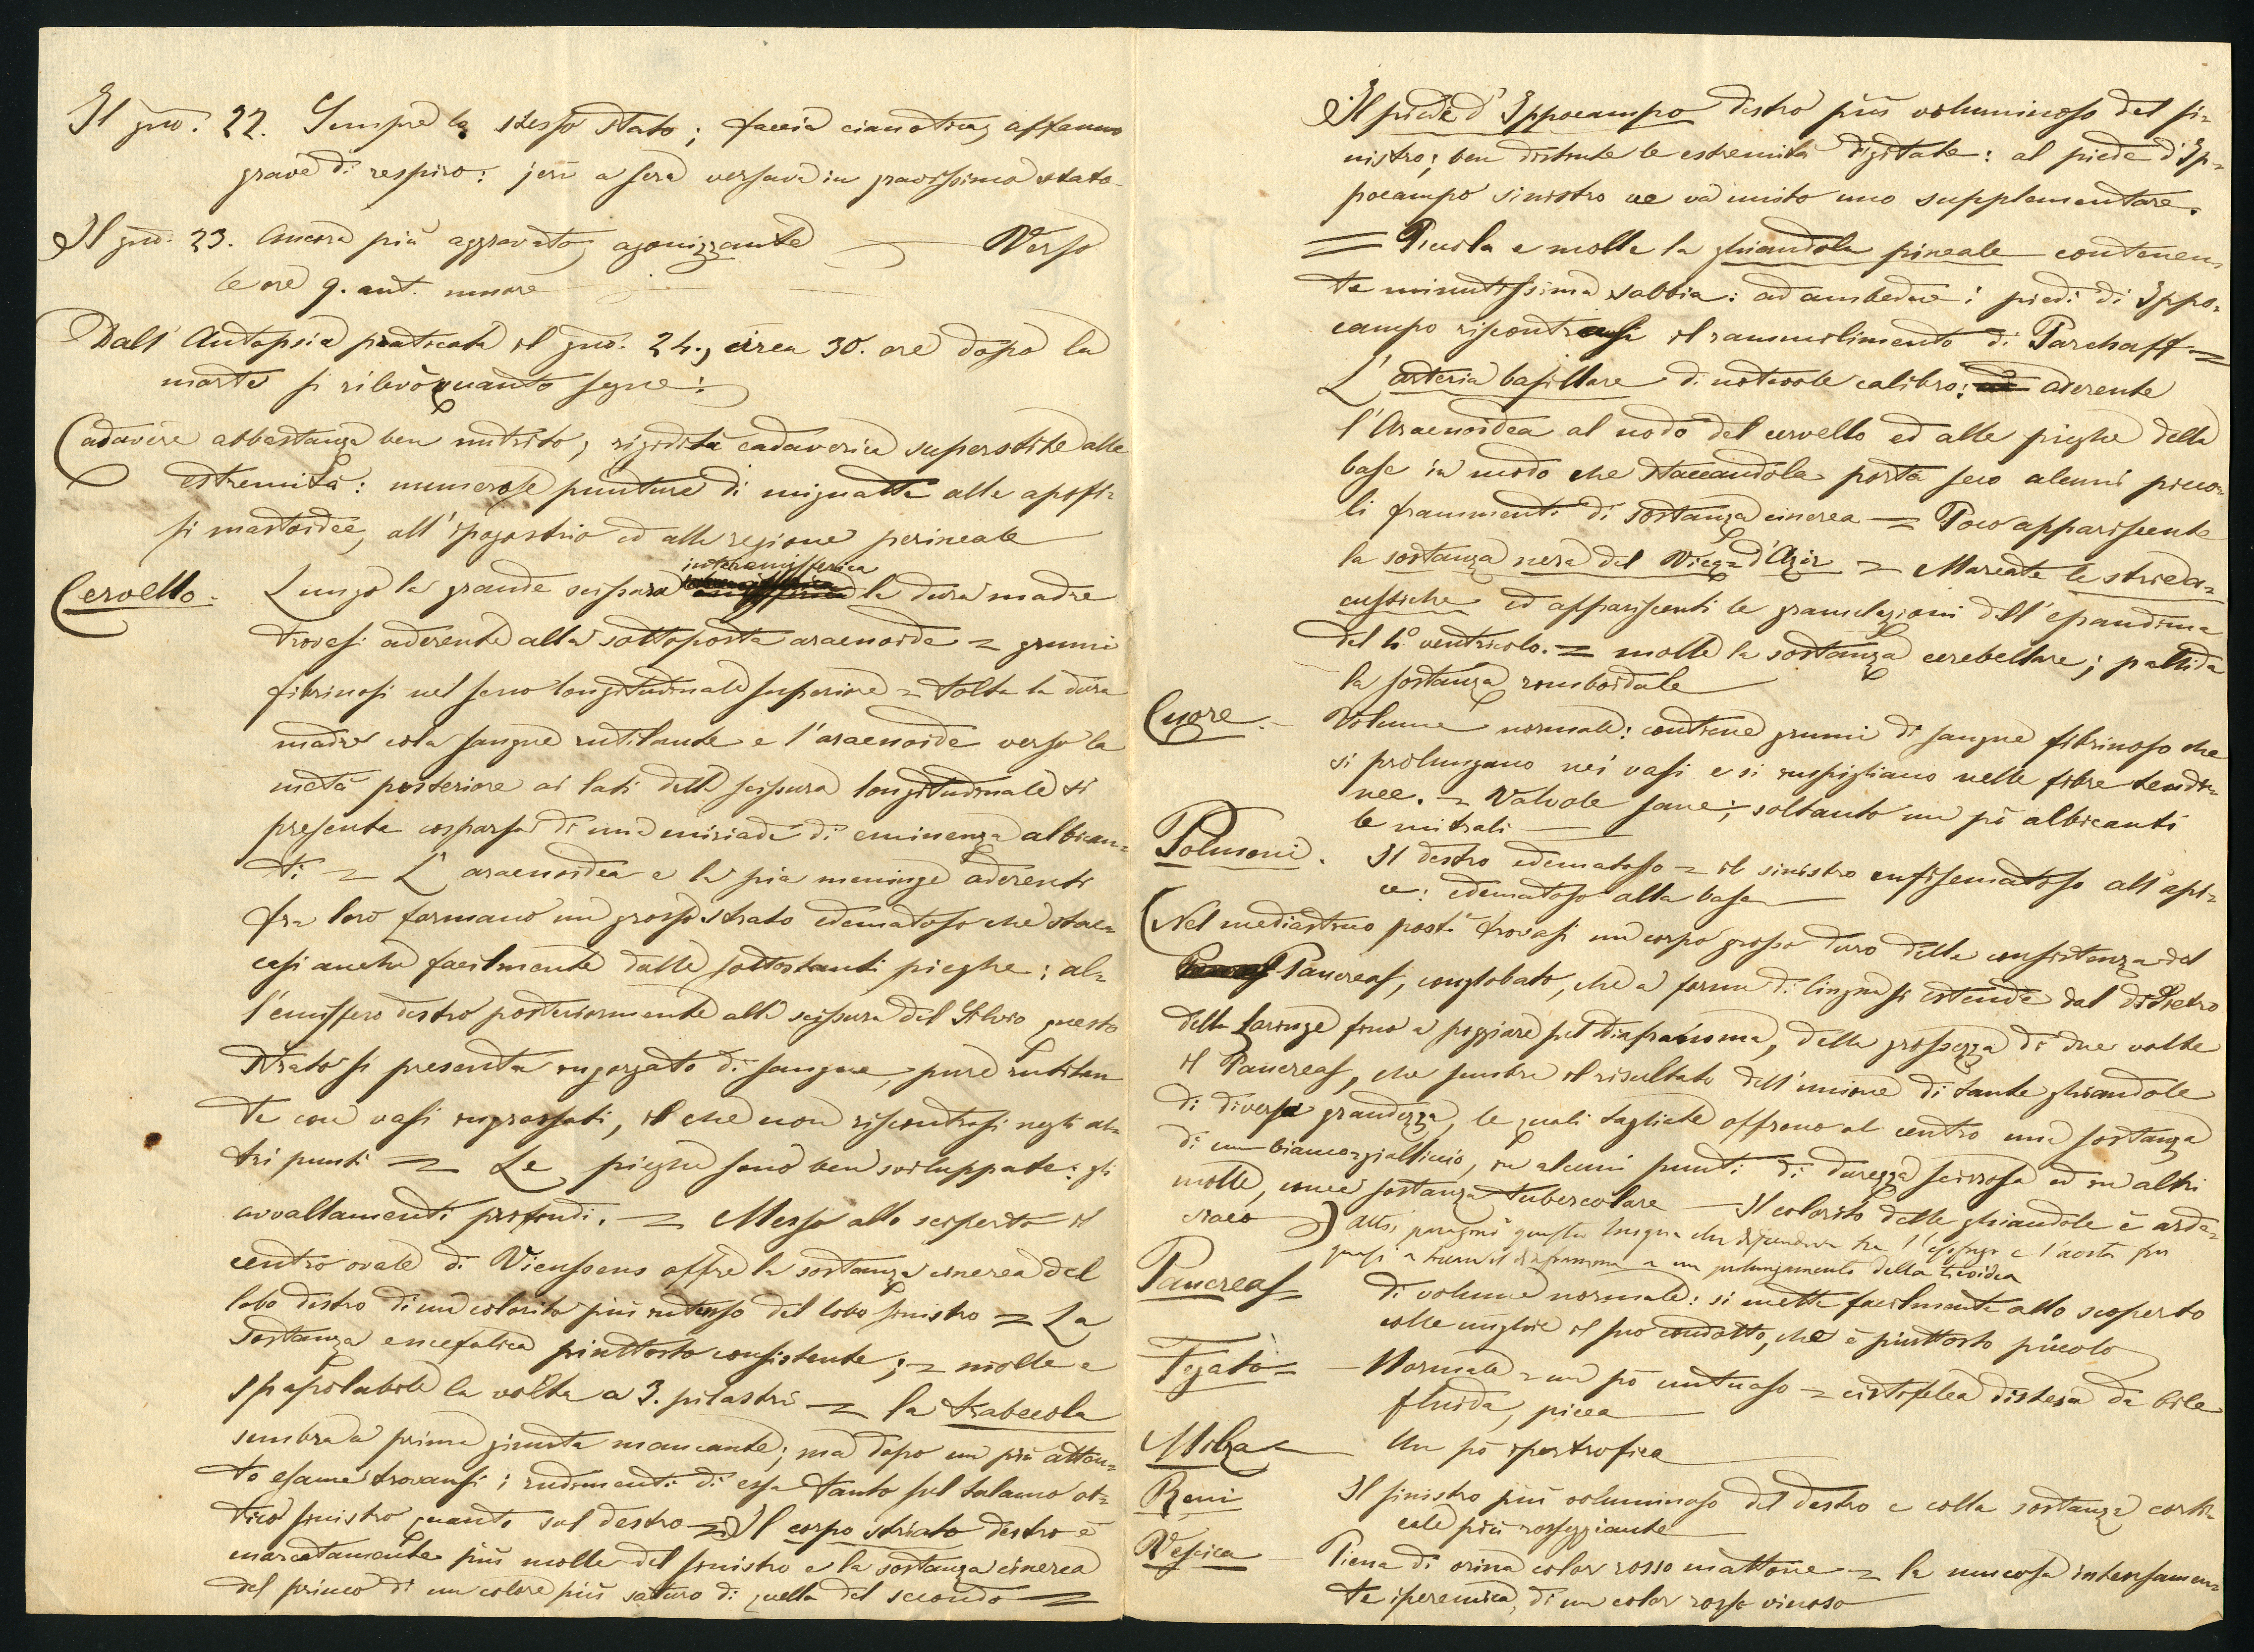 Il gno. 22. Sempre lo stesso stato; faccia cianotica, affanno
grave di respiro: jeri a sera versava in gravissimo stato
Il gno. 23. Ancora più aggravato, agonizzante — Verso
le ore 9. ant. muore
Dall' Autopsia praticata il gno. 24., circa 30. ore dopo la
morte si rilevò quanto segue:
Cadavere abbastanza ben nutrito; rigidità cadaverica superstite alle
estremità: numerose punture di mignatte alle apofi=
si mastoidee, all'ipogastrio ed alla regione perineale
interemisferica
Cervello. Lungo la grande scissura la dura madre
trovasi aderente alla sottoposta aracnoide = grumi
fibrinosi nel seno longitudinale superiore = tolta la dura
madre cola sangue rutilante e l'aracnoide verso la
metà posteriore ai lati della scissura longitudinale si
presenta cosparsa di una miriade di eminenze albican=
ti = L'aracnoidea e la pia meninge aderenti
fra loro formano un grosso strato edematoso che stac=
casi anche facilmente dalle sottostanti pieghe: al=
l'emisfero destro posteriormente alla scissura del Silvio questo
strato si presenta ingorgato di sangue, pure rutilan
te con vasi ingrossati, il che non riscontrasi negli al=
tri punti = Le pieghe sono ben sviluppate: gli
avvallamenti profondi. = Messo allo scoperto il
centro ovale di Vieussens offre la sostanza cinerea del
lobo destro di un colorito più intenso del lobo sinistro = La
sostanza encefalica piuttosto consistente; = molle e
spapolabile la volta a 3. pilastri = la trabecola
sembra a prima giunta mancante; ma dopo un più atten=
to esame trovansi i rudimenti di essa tanto sul talamo ot=
tico sinistro quanto sul destro = Il corpo striato destro è
marcatamente più molle del sinistro e la sostanza cinerea
del primo di un colore più saturo di quella del secondo =
Il piede d'Ippocampo destro più voluminoso del si=
nistro; ben distinte le estremità digitate: al piede d'Ip=
pocampo sinistro ve va unito uno supplementare.
= Piccola e molle la ghiandola pineale contenen=
te minutissima sabbia: ad ambedue i piedi di Ippo=
campo riscontrasi il rammolimento di Parchaff =
L'arteria basillare di notevole calibro: aderente
l'Aracnoidea al nodo del cervello ed alle pieghe della
base in modo che staccandola porta seco alcuni picco=
li frammenti di sostanza cinerea = Poco appariscente
la sostanza nera del Vicq=d'Azir = Marcate le strie a=
custiche ed appariscenti le granulazioni dell'ependima
del 4° ventricolo. = molle la sostanza cerebellare; pallida
la sostanza romboidale
Cuore. Volume normale: contiene grumi di sangue fibrinoso che
si prolungano nei vasi e si inspigliano nelle fibre tendi=
nee. = Valvole sane; soltanto un pò albicanti
le mitrali
Polmoni. Il destro edematoso = il sinistro enfisematoso all'api=
ce: edematoso alla base
(Nel mediastino post.e trovasi un corpo grosso duro della consistenza del
Pancreas, conglobato, che a forma di lingua si estende dal didietro
della laringe fino a poggiare sul diaframma, della grossezza di due volte
il Pancreas, che sembra il risultato dell'unione di tante ghiandole
di diversa grandezza, le quali tagliate offrono al centro una sostanza
di un bianco=gialliccio, in alcuni punti di durezza scirrosa ed in altri
molle, come sostanza tubercolare — Il colorito delle ghiandole è arde=
siaco) paragonò questa lingua che discendeva tra l'esofago e l'aorta fin
quasi a il diaframma a un prolungamento della tiroidea
Pancreas = di volume normale: si mette facilmente allo scoperto
colle unghie il suo condotto, che è piuttosto piccolo
Fegato = Normale = un pò untuoso = cistifelea distesa da bile
fluida, picea
Milza Un pò ipertrofica
Reni Il sinistro più voluminoso del destro e colla sostanza corti=
cale più rosseggiante
Vescica Piena di orina color rosso mattone = la mucosa intensamen=
te iperemica, di un color rosso vinoso